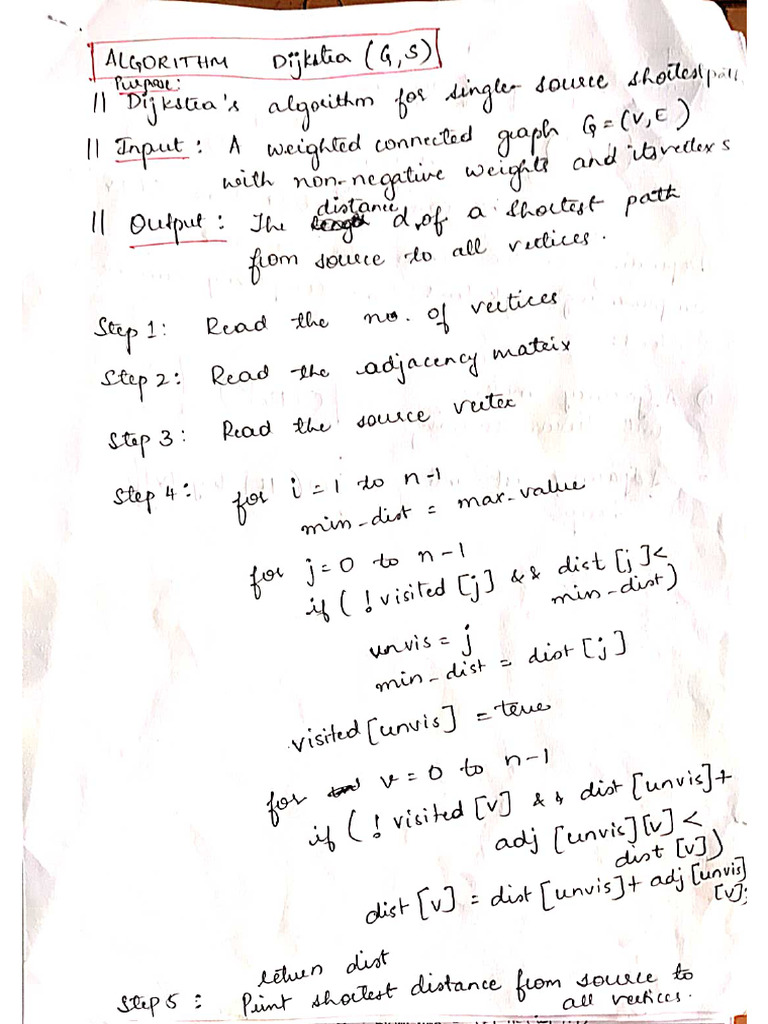 ALGORITHM Dijkstra (G, S)
Purpose:
// Dijkstra's algorithm for single source shortest path
// Input: A weighted connected graph G = (V, E)
with non-negative weights and its vertex s
distance
// Output: The length d, of a shortest path
from source to all vertices.
Step 1: Read the no. of vertices
Step 2: Read the adjacency matrix
Step 3: Read the source vertex
Step 4: for i = 1 to n-1
min_dist = max_value
for j = 0 to n-1
if ( ! visited [j] && dist [j] <
min_dist)
unvis = j
min_dist = dist [j]
visited [unvis] = true
for v = 0 to n-1
if ( ! visited [v] && dist [unvis] +
adj [unvis][v] <
dist [v])
dist [v] = dist [unvis] + adj [unvis]
[v];
return dist
Step 5: Print shortest distance from source to
all vertices.